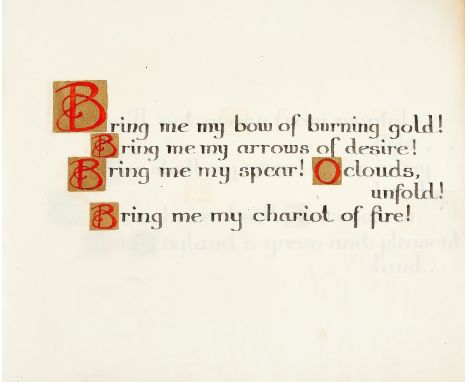 Bring me my bow of burning gold!
Bring me my arrows of desire!
Bring me my spear! O clouds,
unfold!
Bring me my chariot of fire!
England's green and pleasant
land..